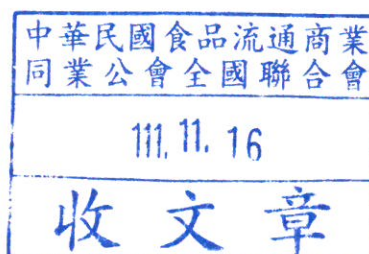 中華民國食品流通商業
同業公會全國聯合會
111. 11. 16
收文章